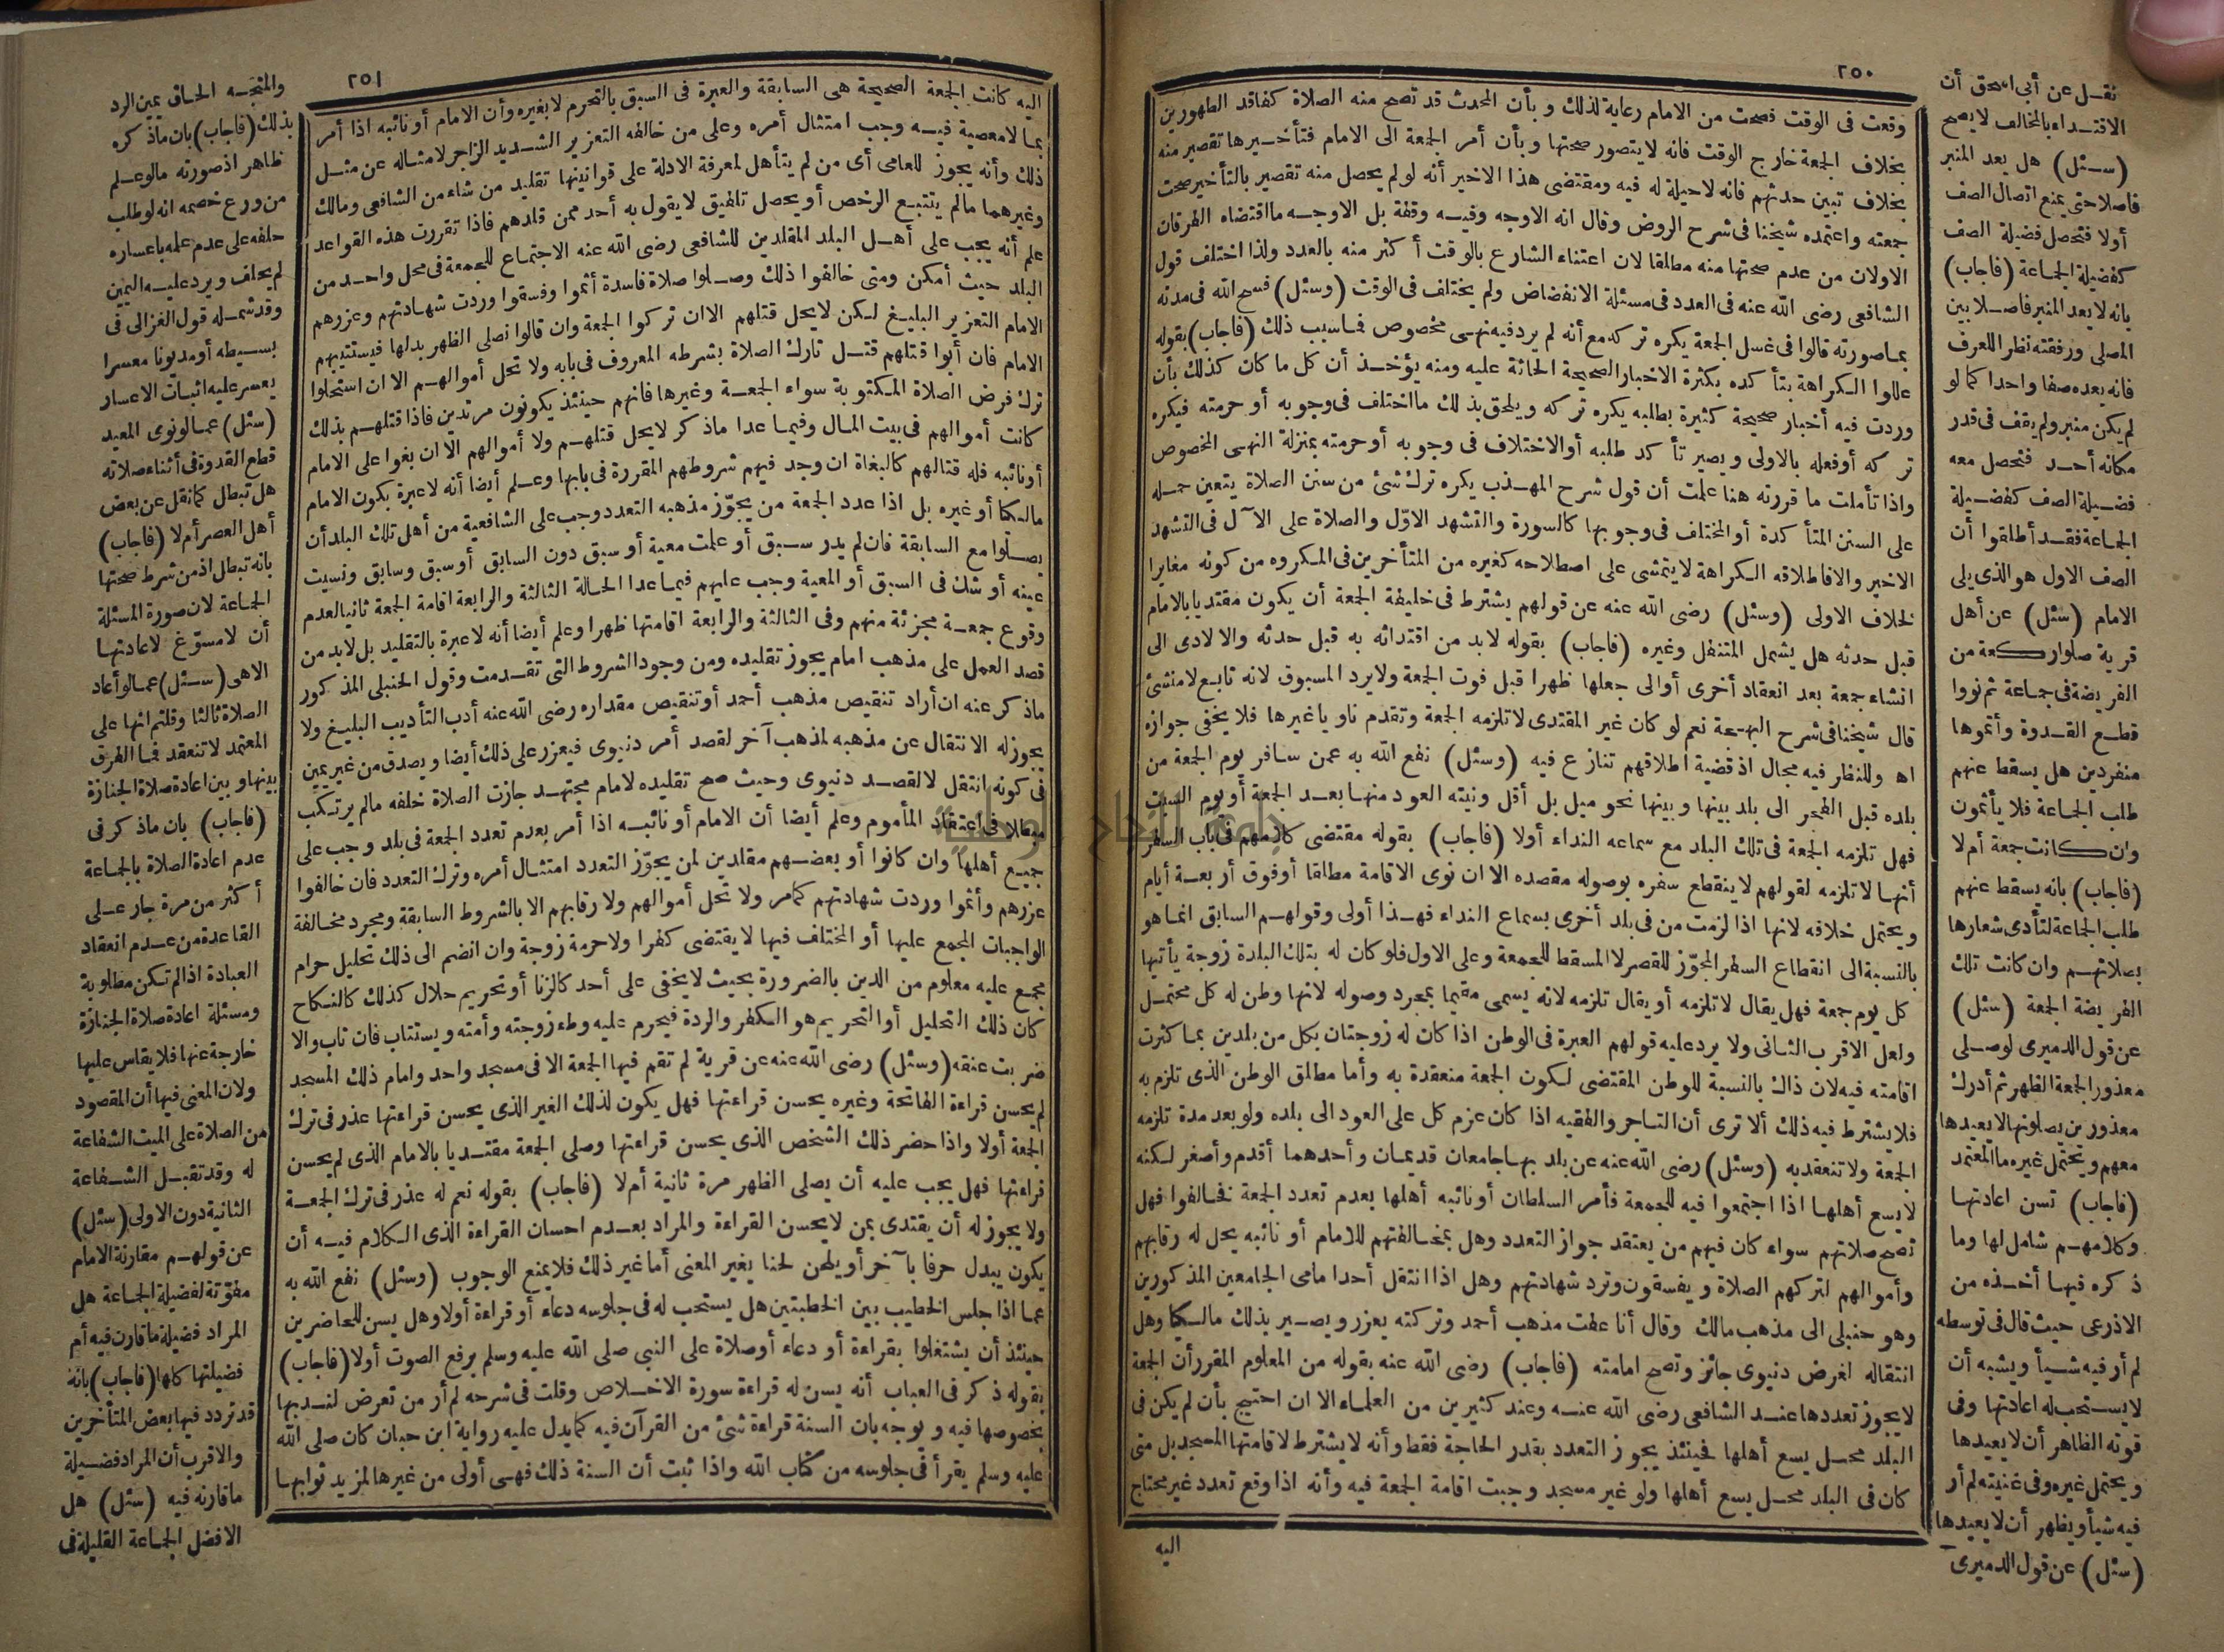 ٢٥٠
وقعت فى الوقت فصحت من الامام رعاية لذلك وبأن المحدث قد تصح منه الصلاة كفاقد الطهورين
بخلاف الجمعة خارج الوقت فانه لا يتصور صحتها وبأن أمر الجمعة الى الامام فتأخيرها تقصير منه
بخلاف تبين حدثهم فانه لا حيلة له فيه ومقتضى هذا الاخير أنه لو لم يحصل منه تقصير بالتأخير صحت
جمعته واعتمده شيخنا فى شرح الروض وقال انه الاوجه وفيه وقفة بل الاوجه ما اقتضاه الفرقان
الاولان من عدم صحتها منه مطلقا لان اعتناء الشارع بالوقت أكثر منه بالعدد ولذا اختلف قول
الشافعى رضى الله عنه فى العدد فى مسئلة الانفضاض ولم يختلف فى الوقت (وسئل) فسح الله فى مدته
بما صورته قالوا فى غسل الجمعة يكره تركه مع أنه لم يرد فيه نهى مخصوص فما سبب ذلك (فاجاب) بقوله
عللوا الكراهة بتأكده بكثرة الاخبار الصحيحة الحاثة عليه ومنه يؤخذ أن كل ما كان كذلك بأن
وردت فيه أخبار صحيحة كثيرة بطلبه يكره تركه ويلحق بذلك ما اختلف فى وجوبه أو حرمته فيكره
تركه أو فعله بالاولى ويصير تأكد طلبه أو الاختلاف فى وجوبه أو حرمته بمنزلة النهى المخصوص
واذا تأملت ما قررته هنا علمت أن قول شرح المهذب يكره ترك شئ من سنن الصلاة يتعين حمله
على السنن المتأكدة أو المختلف فى وجوبها كالسورة والتشهد الاول والصلاة على الآل فى التشهد
الاخير والا فاطلاقه الكراهة لا يتمشى على اصطلاحه كغيره من المتأخرين فى المكروه من كونه مغايرا
لخلاف الاولى (وسئل) رضى الله عنه عن قولهم يشترط فى خليفة الجمعة أن يكون مقتديا بالامام
قبل حدثه هل يشمل المتنفل وغيره (فاجاب) بقوله لابد من اقتدائه به قبل حدثه والا لادى الى
انشاء جمعة بعد انعقاد أخرى أو الى جعلها ظهرا قبل فوت الجمعة ولا يرد المسبوق لانه تابع لا منشئ
قال شيخنا فى شرح البهجة نعم لو كان غير المقتدى لا تلزمه الجمعة وتقدم ناويا غيرها فلا يخفى جوازه
اه وللنظر فيه مجال اذ قضية اطلاقهم تنازع فيه (وسئل) نفع الله به عمن سافر يوم الجمعة من
بلده قبل الفجر الى بلد بينها وبينها نحو ميل بل أقل ونيته العود منها بعد الجمعة أو يوم السبت
فهل تلزمه الجمعة فى تلك البلد مع سماعه النداء أولا (فاجاب) بقوله مقتضى كلامهم فى باب السفر
أنها لا تلزمه لقولهم لا ينقطع سفره بوصوله مقصده الا ان نوى الاقامة مطلقا أو فوق أربعة أيام
ويحتمل خلافه لانها اذا لزمت من فى بلد أخرى بسماع النداء فهذا أولى وقولهم السابق انما هو
بالنسبة الى انقطاع السفر المجوّز للقصر لا المسقط للجمعة وعلى الاول فلو كان له بتلك البلدة زوجة يأتيها
كل يوم جمعة فهل يقال لا تلزمه أو يقال تلزمه لانه يسمى مقيما بمجرد وصوله لانها وطن له كل محتمل
ولعل الاقرب الثانى ولا يرد عليه قولهم العبرة فى الوطن اذا كان له زوجتان بكل من بلدين بما كثرت
اقامته فيه لان ذاك بالنسبة للوطن المقتضى لكون الجمعة منعقدة به وأما مطلق الوطن الذى تلزم به
فلا يشترط فيه ذلك ألا ترى أن التاجر والفقيه اذا كان عزم كل على العود الى بلده ولو بعد مدة تلزمه
الجمعة ولا تنعقد به (وسئل) رضى الله عنه عن بلد بها جامعان قديمان وأحدهما أقدم وأصغر لكنه
لا يسع أهلها اذا اجتمعوا فيه للجمعة فأمر السلطان أو نائبه أهلها بعدم تعدد الجمعة فخالفوا فهل
تصح صلاتهم سواء كان فيهم من يعتقد جواز التعدد وهل بمخالفتهم للامام أو نائبه يحل له رقابهم
وأموالهم لتركهم الصلاة ويفسقون وترد شهادتهم وهل اذا انتقل أحد امامى الجامعين المذكورين
وهو حنبلى الى مذهب مالك وقال أنا عفت مذهب أحمد وتركته يعزر ويصير بذلك مالكيا وهل
انتقاله لغرض دنيوى جائز وتصح امامته (فاجاب) رضى الله عنه بقوله من المعلوم المقرر أن الجمعة
لا يجوز تعددها عند الشافعى رضى الله عنه وعند كثيرين من العلماء الا ان احتيج بأن لم يكن فى
البلد محل يسع أهلها فحينئذ يجوز التعدد بقدر الحاجة فقط وأنه لا يشترط لاقامتها المسجد بل متى
كان فى البلد محل يسع أهلها ولو غير مسجد وجبت اقامة الجمعة فيه وأنه اذا وقع تعدد غير محتاج
اليه
نقل عن أبى اسحق أن
الاقتداء بالمخالف لا يصح
(سئل) هل يعد المنبر
فاصلا حتى يمنع اتصال الصف
أولا فتحصل فضيلة الصف
كفضيلة الجماعة (فاجاب)
بانه لا يعد المنبر فاصلا بين
المصلى ورفقته نظرا للعرف
فانه يعده صفا واحدا كما لو
لم يكن منبر ولم يقف فى قدر
مكانه أحد فتحصل معه
فضيلة الصف كفضيلة
الجماعة فقد أطلقوا أن
الصف الاول هو الذى يلى
الامام (سئل) عن أهل
قرية صلوا ركعة من
الفريضة فى جماعة ثم نووا
قطع القدوة وأتموها
منفردين هل يسقط عنهم
طلب الجماعة فلا يأثمون
وان كانت جمعة أم لا
(فاجاب) بانه يسقط عنهم
طلب الجماعة لتأدى شعارها
بصلاتهم وان كانت تلك
الفريضة الجمعة (سئل)
عن قول الدميرى لو صلى
معذور الجمعة الظهر ثم أدرك
معذورين يصلونها لا يعيدها
معهم ويحتمل غيره ما المعتمد
(فاجاب) تسن اعادتها
وكلامهم شامل لها وما
ذكره فيها أخذه من
الاذرعى حيث قال فى توسطه
لم أر فيه شيأ ويشبه أن
لا يستحب له اعادتها وفى
قوته الظاهر أن لا يعيدها
ويحتمل غيره وفى غنيته لم أر
فيه شيأ ويظهر أن لا يعيدها
(سئل) عن قول الدميرى
٢٥١
اليه كانت الجمعة الصحيحة هى السابقة والعبرة فى السبق بالتحرم لا بغيره وأن الامام أو نائبه اذا أمر
بما لا معصية فيه وجب امتثال أمره وعلى من خالفه التعزير الشديد الزاجر لامثاله عن مثل
ذلك وأنه يجوز للعامى أى من لم يتأهل لمعرفة الادلة على قوانينها تقليد من شاء من الشافعى ومالك
وغيرهما ما لم يتتبع الرخص أو يحصل تلفيق لا يقول به أحد ممن قلدهم فاذا تقررت هذه القواعد
علم أنه يجب على أهل البلد المقلدين للشافعى رضى الله عنه الاجتماع للجمعة فى محل واحد من
البلد حيث أمكن ومتى خالفوا ذلك وصلوا صلاة فاسدة أثموا وفسقوا وردت شهادتهم وعزرهم
الامام التعزير البليغ لكن لا يحل قتلهم الا ان تركوا الجمعة وان قالوا نصلى الظهر بدلها فيستتيبهم
الامام فان أبوا قتلهم قتل تارك الصلاة بشرطه المعروف فى بابه ولا تحل أموالهم الا ان استحلوا
ترك فرض الصلاة المكتوبة سواء الجمعة وغيرها فانهم حينئذ يكونون مرتدين فاذا قتلهم بذلك
كانت أموالهم فى بيت المال وفيما عدا ما ذكر لا يحل قتلهم ولا أموالهم الا ان بغوا على الامام
أو نائبه فله قتالهم كالبغاة ان وجد فيهم شروطهم المقررة فى بابها وعلم أيضا أنه لا عبرة بكون الامام
مالكيا أو غيره بل اذا عدد الجمعة من يجوّز مذهبه التعدد وجب على الشافعية من أهل تلك البلد أن
يصلوا مع السابقة فان لم يدر سبق أو علمت معية أو سبق دون السابق أو سبق وسابق ونسيت
عينه أو شك فى السبق أو المعية وجب عليهم فيما عدا الحالة الثالثة والرابعة اقامة الجمعة ثانيا لعدم
وقوع جمعة مجزئة منهم وفى الثالثة والرابعة اقامتها ظهرا وعلم أيضا أنه لا عبرة بالتقليد بل لابد من
قصد العمل على مذهب امام يجوز تقليده ومن وجود الشروط التى تقدمت وقول الحنبلى المذكور
ما ذكر عنه ان أراد تنقيص مذهب أحمد أو تنقيص مقداره رضى الله عنه أدب التأديب البليغ ولا
يجوز له الانتقال عن مذهبه لمذهب آخر لقصد أمر دنيوى فيعزر على ذلك أيضا ويصدق من غير يمين
فى كونه انتقل لا لقصد دنيوى وحيث صح تقليده لامام مجتهد جازت الصلاة خلفه ما لم يرتكب
مبطلا فى اعتقاد المأموم وعلم أيضا أن الامام أو نائبه اذا أمر بعدم تعدد الجمعة فى بلد وجب على
جميع أهلها وان كانوا أو بعضهم مقلدين لمن يجوّز التعدد امتثال أمره وترك التعدد فان خالفوا
عزرهم وأثموا وردت شهادتهم كما مر ولا تحل أموالهم ولا رقابهم الا بالشروط السابقة ومجرد مخالفة
الواجبات المجمع عليها أو المختلف فيها لا يقتضى كفرا ولا حرمة زوجة وان انضم الى ذلك تحليل حرام
مجمع عليه معلوم من الدين بالضرورة بحيث لا يخفى على أحد كالزنا أو تحريم حلال كذلك كالنكاح
كان ذلك التحليل أو التحريم هو الكفر والردة فيحرم عليه وطء زوجته وأمته ويستتاب فان تاب والا
ضربت عنقه (وسئل) رضى الله عنه عن قرية لم تقم فيها الجمعة الا فى مسجد واحد وامام ذلك المسجد
لم يحسن قراءة الفاتحة وغيره يحسن قراءتها فهل يكون لذلك الغير الذى يحسن قراءتها عذر فى ترك
الجمعة أولا واذا حضر ذلك الشخص الذى يحسن قراءتها وصلى الجمعة مقتديا بالامام الذى لم يحسن
قراءتها فهل يجب عليه أن يصلى الظهر مرة ثانية أم لا (فاجاب) بقوله نعم له عذر فى ترك الجمعة
ولا يجوز له أن يقتدى بمن لا يحسن القراءة والمراد بعدم احسان القراءة الذى الكلام فيه أن
يكون يبدل حرفا بآخر أو يلحن لحنا يغير المعنى أما غير ذلك فلا يمنع الوجوب (وسئل) نفع الله به
عما اذا جلس الخطيب بين الخطبتين هل يستحب له فى جلوسه دعاء أو قراءة أولا وهل يسن للحاضرين
حينئذ أن يشتغلوا بقراءة أو دعاء أو صلاة على النبى صلى الله عليه وسلم برفع الصوت أولا (فاجاب)
بقوله ذكر فى العباب أنه يسن له قراءة سورة الاخلاص وقلت فى شرحه لم أر من تعرض لندبها
بخصوصها فيه ويوجه بان السنة قراءة شئ من القرآن فيه كما يدل عليه رواية ابن حبان كان صلى الله
عليه وسلم يقرأ فى جلوسه من كتاب الله واذا ثبت أن السنة ذلك فهى أولى من غيرها لمزيد ثوابها
والمتجه الحاق يمين الرد
بذلك (فاجاب) بان ما ذكره
ظاهر اذ صورته ما لو علم
من ورع خصمه انه لو طلب
حلفه على عدم علمه باعساره
لم يحلف ويرد عليه اليمين
وقد شمله قول الغزالى فى
بسيطه أو مديونا معسرا
يعسر عليه اثبات الاعسار
(سئل) عما لو نوى المعيد
قطع القدوة فى أثناء صلاته
هل تبطل كما نقل عن بعض
أهل العصر أم لا (فاجاب)
بانه تبطل اذ من شرط صحتها
الجماعة لان صورة المسئلة
أن لا مسوّغ لاعادتها
الا هى (سئل) عما لو أعاد
الصلاة ثالثا وقلتم انها على
المعتمد لا تنعقد فما الفرق
بينها وبين اعادة صلاة الجنازة
(فاجاب) بان ما ذكر فى
عدم اعادة الصلاة بالجماعة
أكثر من مرة جار على
القاعدة من عدم انعقاد
العبادة اذا لم تكن مطلوبة
ومسئلة اعادة صلاة الجنازة
خارجة عنها فلا يقاس عليها
ولان المعنى فيها أن المقصود
من الصلاة على الميت الشفاعة
له وقد تقبل الشفاعة
الثانية دون الاولى (سئل)
عن قولهم مقارنة الامام
مفوّتة لفضيلة الجماعة هل
المراد فضيلة ما قارن فيه أم
فضيلتها كلها (فاجاب) بانه
قد تردد فيها بعض المتأخرين
والاقرب أن المراد فضيلة
ما قارنه فيه (سئل) هل
الافضل الجماعة القليلة فى